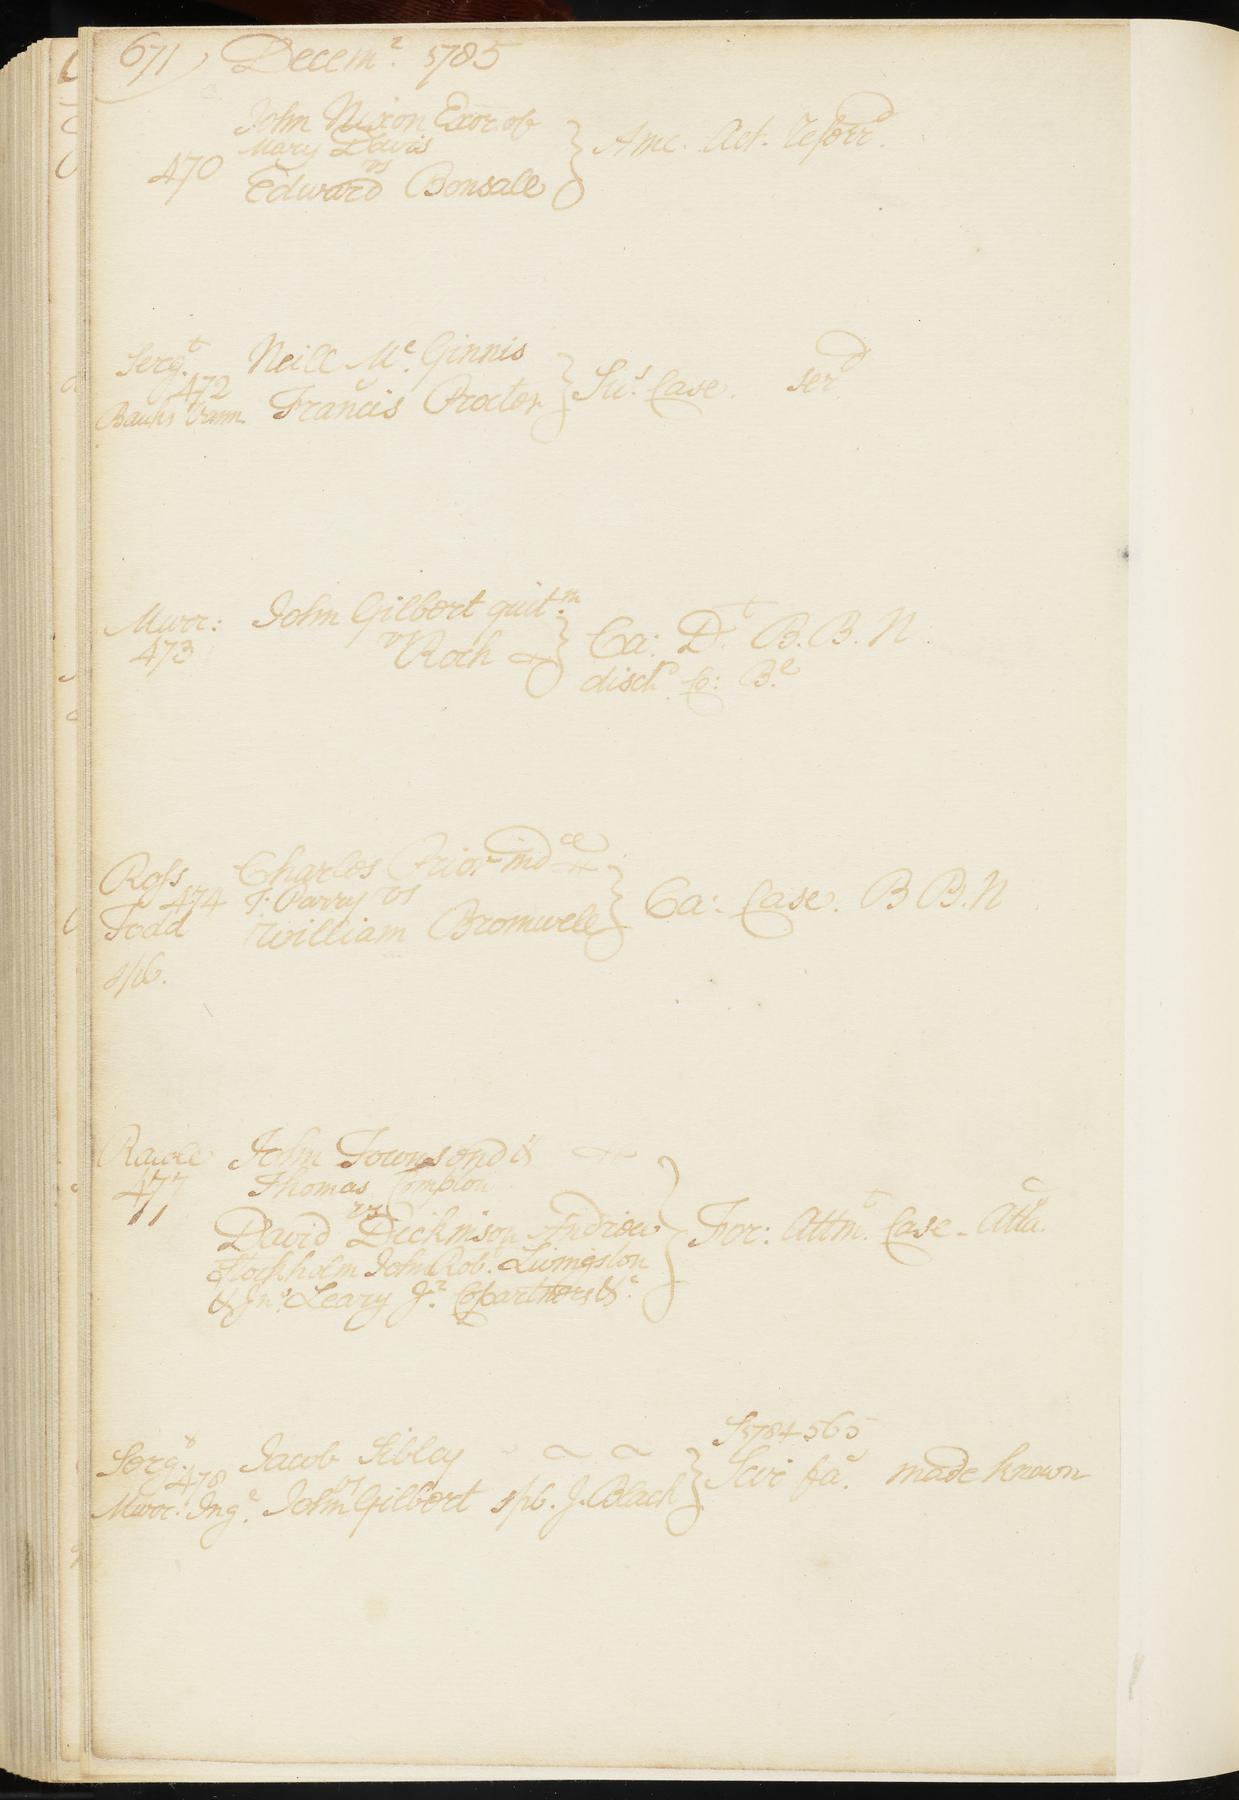 671 Decemr. 1785
John Nixon Exor of
Mary Davis
470 vs
Edward Bonsall } Ame. Act. Reford.
Sergt. Neill Mc. Ginnis
472 } Sus. Case. serd
Francis Procter
Murr: John Gilbert quit.m
473 vs Roch } Ca: Dt. B. B. N.
dischd. C: Be
Ross Charles Prior indce
474 T. Parry vs } Ca: Case. B B. N
Todd William Bromwell
spb.
Rawle John Townsend &
477 Thomas Compton
vs
David Dickinson Andrew } For: Attmt. Case - Attd.
Stockholm John Robt. Livingston
& Jno. Leary Jr. Copartners &c.
S 1784 565
Sergt. Jacob Sibley } Scire fas. made known
478 vs
Murr. Ing. John Gilbert spb. J. Black